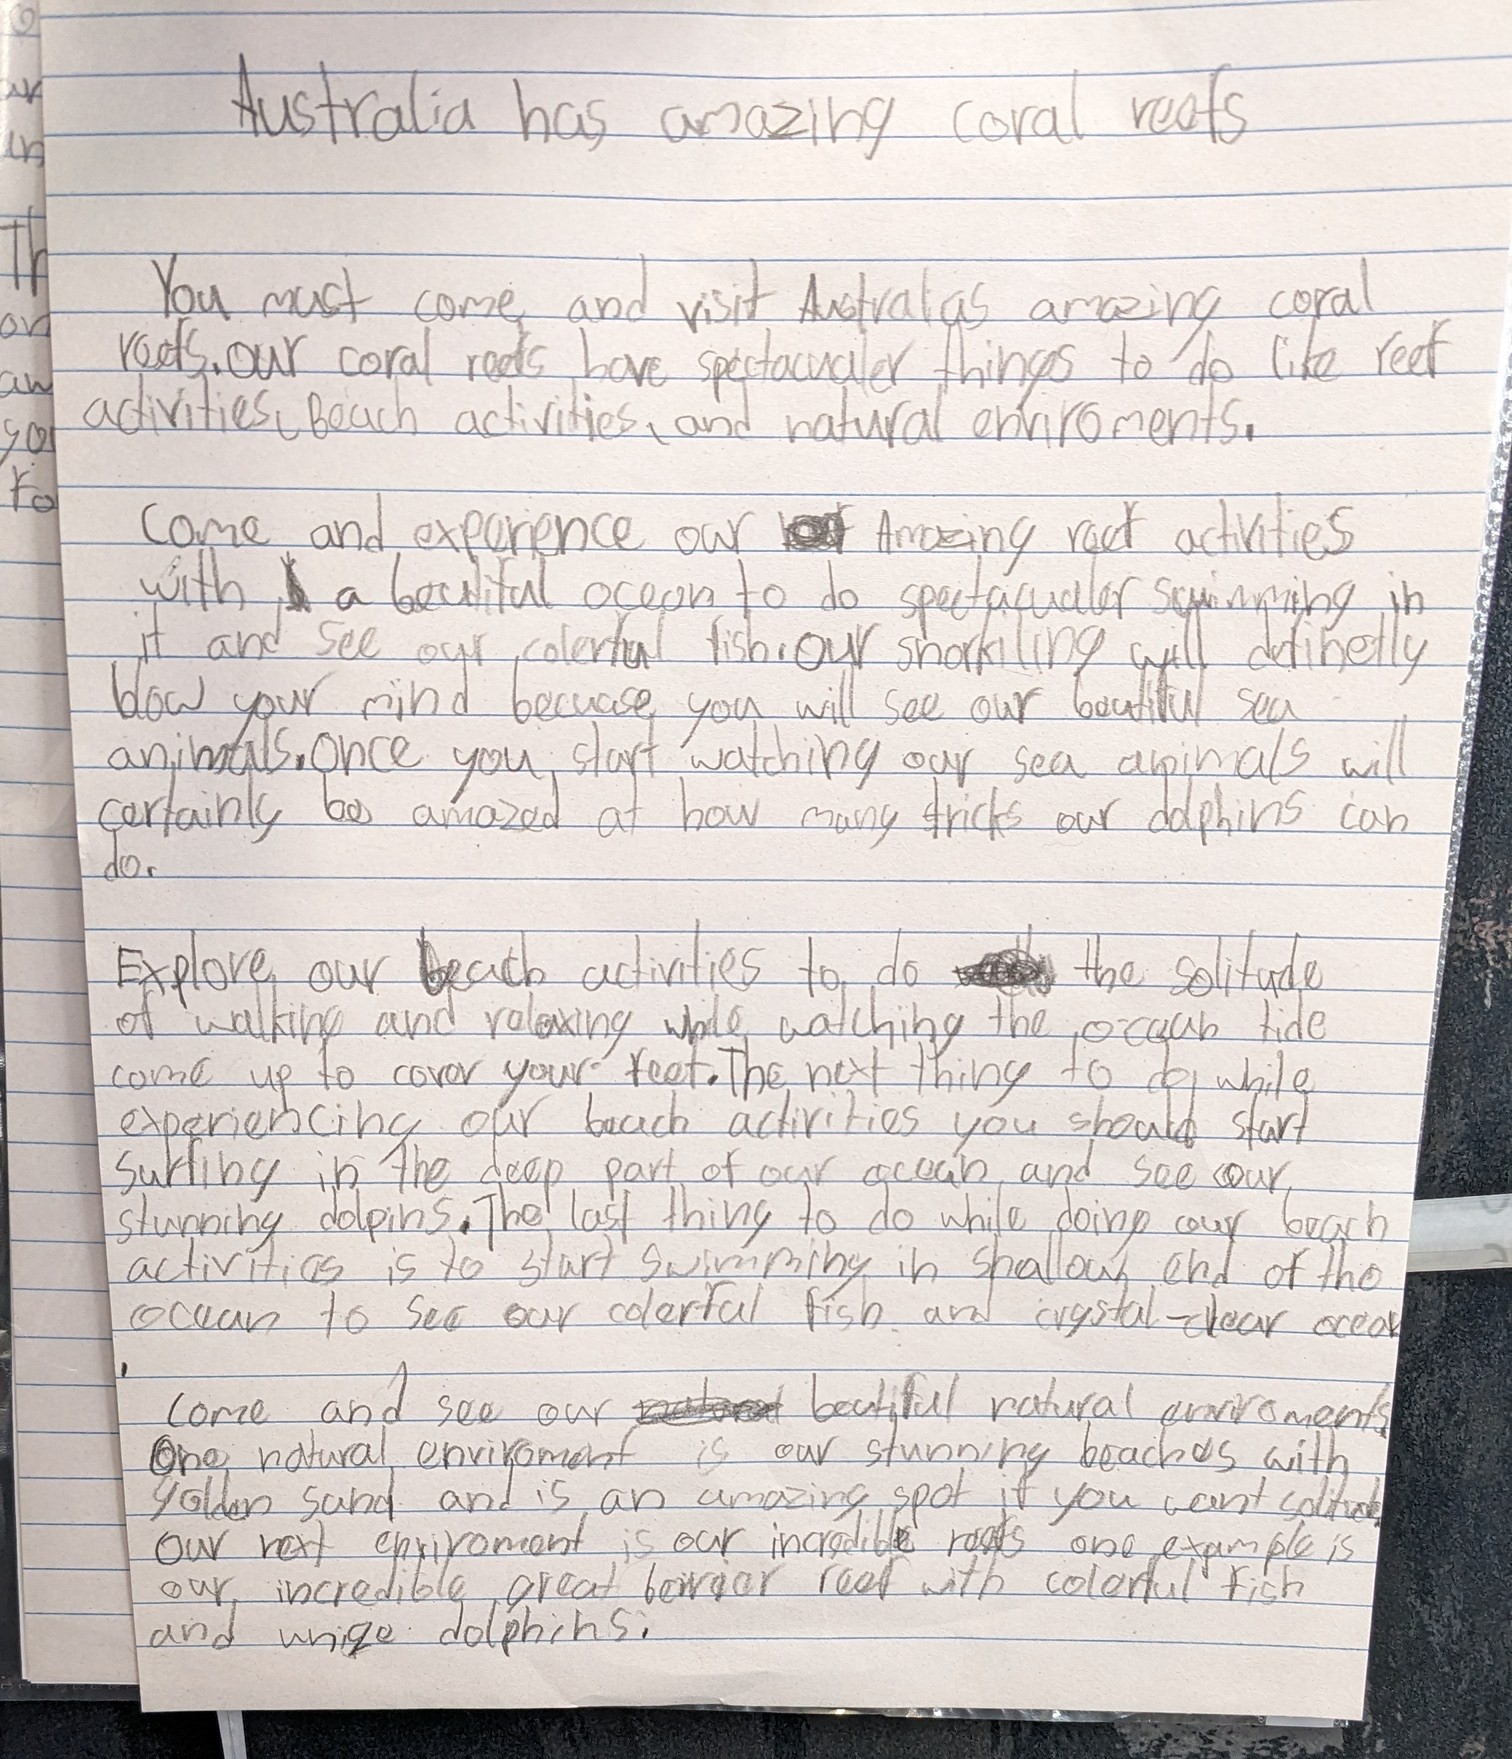 Australia has amazing coral reefs
You must come and visit Australias amazing coral
reefs. our coral reefs have spectacualer things to do like reef
activities, Beach activities, and natural enviroments.
Come and experience our Amazing reef activities
with a beautiful ocean to do spectacualer swimming in
it and see our colerful fish. our snorkiling will definetly
blow your mind becuase you will see our beautiful sea
animals. once you start watching our sea animals will
certainly be amazed at how many tricks our dolphins can
do.
Explore our beach activities to do the solitude
of walking and relaxing while watching the ocean tide
come up to cover your feet. The next thing to do while
experiencing our beach activities you should start
surfing in the deep part of our ocean and see our
stunning dolpins. The last thing to do while doing our beach
activities is to start swimming in shallow end of the
ocean to see our colerful fish and crystal-clear ocean
.
Come and see our beutiful natural enviroments
One natural enviroment is our stunning beaches with
golden sand and is an amazing spot if you want solitude
our next enviroment is our incredible reefs one example is
our incredible great berrier reef with colerful fish
and uniqe dolphins.